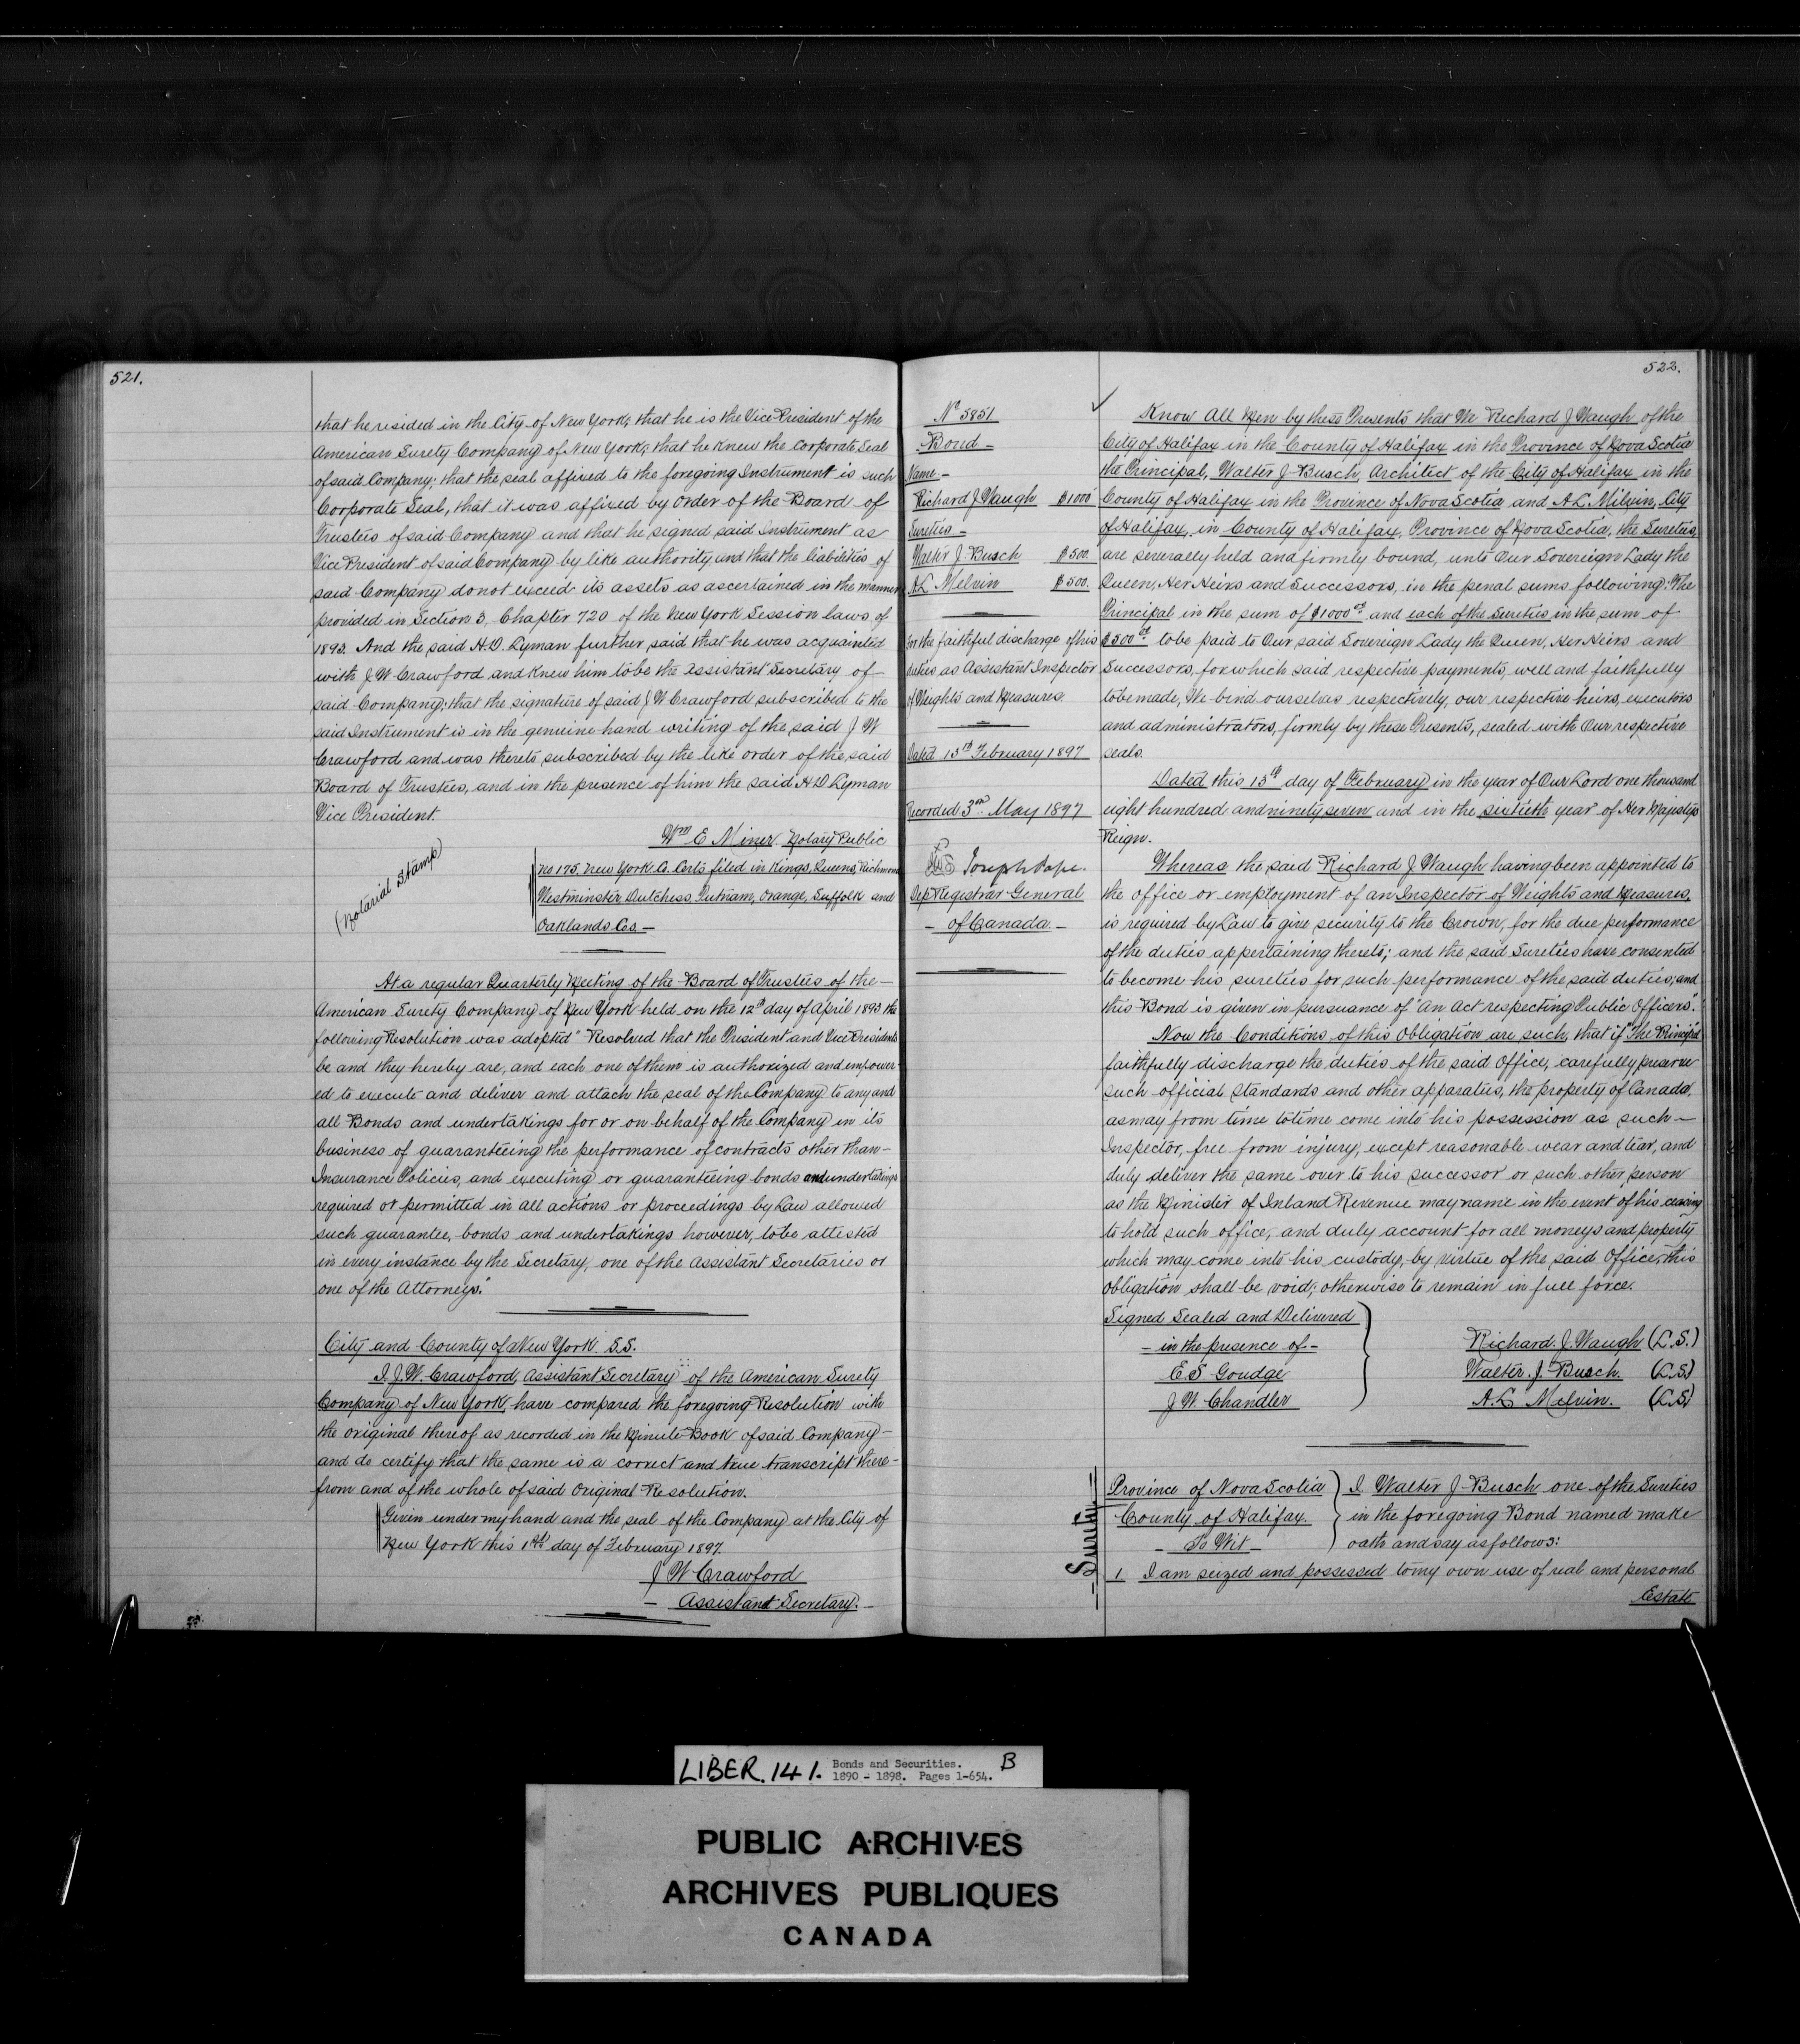 521.
that he resided in the City of New York, that he is the Vice President of the
American Surety Company of New York, that he knew the Corporate Seal
of said Company; that the seal affixed to the foregoing Instrument is such
Corporate Seal, that it was affixed by order of the Board of
Trustees of said Company and that he signed said Instrument as
Vice President of said Company by like authority and that the liabilities of
said Company do not exceed its assets as ascertained in the manner
provided in Section 3, Chapter 720 of the New York Session laws of
1893. And the said H.D. Lyman further said that he was acquainted
with J W Crawford and knew him to be the Assistant Secretary of
said Company; that the signature of said J W Crawford subscribed to the
said Instrument is in the genuine hand writing of the said J W
Crawford and was thereto subscribed by the like order of the said
Board of Trustees, and in the presence of him the said H D Lyman
Vice President.
Wm E Miner Notary Public
(Notarial Stamp)
No 175. New York Co. Certs filed in Kings, Queens, Richmond
Westminster Dutchess Putnam, Orange, Suffolk and
Oaklands Cos —
At a regular Quarterly Meeting of the Board of Trustees of the —
American Surety Company of New York held on the 12th day of April 1893 the
following Resolution was adopted "Resolved that the President and Vice Presidents
be and they hereby are, and each one of them is authorized and empower-
ed to execute and deliver and attach the seal of the Company to any and
all Bonds and undertakings for or on behalf of the Company in its
business of guaranteeing the performance of contracts other than —
Insurance Policies, and executing or guaranteeing bonds and undertakings
required or permitted in all actions or proceedings by Law allowed
such guarantee, bonds and undertakings however, to be attested
in every instance by the Secretary, one of the Assistant Secretaries or
one of the Attorneys."
City and County of New York S.S.
I, J.W. Crawford, Assistant Secretary of the American Surety
Company of New York, have compared the foregoing Resolution with
the original thereof as recorded in the Minute Book of said Company —
and do certify that the same is a correct and true transcript there-
from and of the whole of said Original Resolution.
Given under my hand and the seal of the Company at the City of
New York this 1st day of February 1897.
J W Crawford
— Assistant Secretary. —
522.
No 5851
Bond —
Name —
Richard J Waugh $1000
Sureties —
Walter J. Busch $500.
A.L Melvin $500.
for the faithful discharge of his
duties as Assistant Inspector
of Weights and Measures.
Dated 15th February 1897
Recorded 3rd May 1897
Joseph Pope.
Dep Registrar General
— of Canada. —
Know All Men by these Presents that We Richard J Waugh of the
City of Halifax in the County of Halifax in the Province of Nova Scotia
the Principal, Walter J. Busch, Architect of the City of Halifax in the
County of Halifax in the Province of Nova Scotia and A L. Milvin, City
of Halifax, in County of Halifax, Province of Nova Scotia, the Sureties,
are severally held and firmly bound, unto Our Sovereign Lady the
Queen, Her Heirs and Successors, in the penal sums following: The
Principal in the sum of $1000 cts and each of the Sureties in the sum of
$500 cts to be paid to Our said Sovereign Lady the Queen, Her Heirs and
Successors, for which said respective payments, well and faithfully
to be made, We bind ourselves respectively, our respective heirs, executors
and administrators, firmly by these Presents, sealed with Our respective
seals.
Dated this 15th day of February in the year of Our Lord one thousand
eight hundred and ninety seven and in the sixtieth year of Her Majesty's
Reign.
Whereas the said Richard J Waugh having been appointed to
the office or employment of an Inspector of Weights and Measures,
is required by Law to give security to the Crown, for the due performance
of the duties appertaining thereto; and the said Sureties have consented
to become his sureties for such performance of the said duties; and
this Bond is given in pursuance of "An Act respecting Public Officers".
Now the Conditions of this Obligation are such, that if "The Principal"
faithfully discharge the duties of the said Office, carefully preserve
such official standards and other apparatus, the property of Canada,
as may from time to time come into his possession as such —
Inspector, free from injury, except reasonable wear and tear, and
duly deliver the same over to his successor or such other person
as the Minister of Inland Revenue may name in the event of his ceasing
to hold such office, and duly account for all moneys and property
which may come into his custody, by virtue of the said Office, this
obligation shall be void; otherwise to remain in full force.
Signed Sealed and Delivered
— in the presence of —
E S Goudge
J W Chandler
Richard J. Waugh (L.S.)
Walter. J. Busch. (L.S)
A.L Melvin. (L.S)
— Surety —
Province of Nova Scotia
County of Halifax.
— To Wit —
I Walter J. Busch one of the Sureties
in the foregoing Bond named make
oath and say as follows:
1 I am seized and possessed to my own use of real and personal
Estate
LIBER. 141. Bonds and Securities. B
1890 - 1898. Pages 1-654.
PUBLIC ARCHIVES
ARCHIVES PUBLIQUES
CANADA